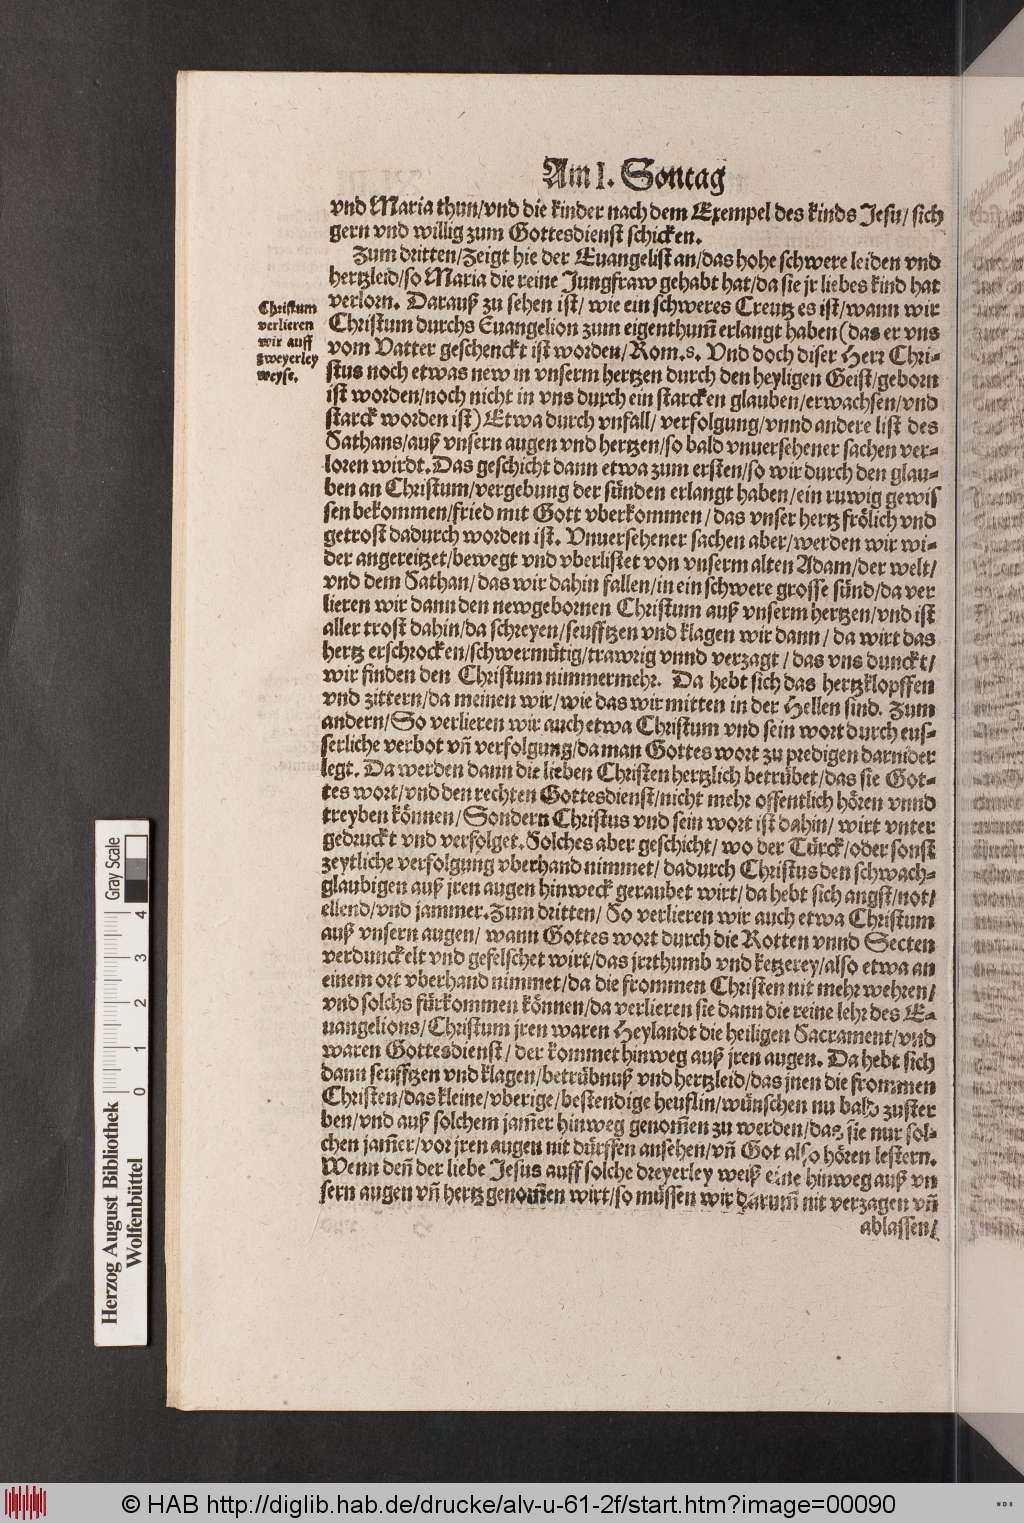 Am I. Sontag
vnd Maria thun/vnd die kinder nach dem Exempel des kinds Jesu/ sich
gern vnd willig zum Gottesdienst schicken.
Zum dritten/Zeigt hie der Euangelist an/das hohe schwere leiden vnd
hertzleid/so Maria die reine Jungfraw gehabt hat/da sie jr liebes kind hat
verlorn. Darauß zu sehen ist/ wie ein schweres Creutz es ist/wann wir
Christum durchs Euangelion zum eigenthum̃ erlangt haben (das er vns
vom Vatter geschenckt ist worden/Rom.8. Vnd doch diser Herr Chri-
stus noch etwas new in vnserm hertzen durch den heyligen Geist/geborn
ist worden/noch nicht in vns durch ein starcken glauben/erwachsen/vnd
starck worden ist) Etwa durch vnfall/ verfolgung/vnnd andere list des
Sathans/auß vnsern augen vnd hertzen/so bald vnuersehener sachen ver-
loren wirdt. Das geschicht dann etwa zum ersten/so wir durch den glau-
ben an Christum/vergebung der sünden erlangt haben/ein ruwig gewis
sen bekommen/fried mit Gott vberkommen/ das vnser hertz frölich vnd
getrost dadurch worden ist. Vnuersehener sachen aber/werden wir wi-
der angereitzet/bewegt vnd vberlistet von vnserm alten Adam/der welt/
vnd dem Sathan/das wir dahin fallen/in ein schwere grosse sünd/da ver
lieren wir dann den newgebornen Christum auß vnserm hertzen/vnd ist
aller trost dahin/da schreyen/seufftzen vnd klagen wir dann/ da wirt das
hertz erschrocken/schwermütig/trawrig vnnd verzagt/ das vns dunckt/
wir finden den Christum nimmermehr. Da hebt sich das hertzklopffen
vnd zittern/da meinen wir/wie das wir mitten in der Hellen sind. Zum
andern/So verlieren wir auch etwa Christum vnd sein wort durch eus-
serliche verbot vñ verfolgung/da man Gottes wort zu predigen darnider
legt. Da werden dann die lieben Christen hertzlich betrübet/das sie Got-
tes wort/vnd den rechten Gottesdienst/nicht mehr offentlich hören vnnd
treyben können/Sondern Christus vnd sein wort ist dahin/ wirt vnter
gedruckt vnd verfolget. Solches aber geschicht/ wo der Türck/oder sonst
zeytliche verfolgung vberhand nimmet/ dadurch Christus den schwach-
glaubigen auß jren augen hinweck geraubet wirt/da hebt sich angst/not/
ellend/vnd jammer. Zum dritten/ So verlieren wir auch etwa Christum
auß vnsern augen/ wann Gottes wort durch die Rotten vnnd Secten
verdunckelt vnd gefelschet wirt/das jrrthumb vnd ketzerey/also etwa an
einem ort vberhand nimmet/da die frommen Christen nit mehr wehren/
vnd solchs fürkommen können/da verlieren sie dann die reine lehr des E-
uangelions/Christum jren waren Heylandt die heiligen Sacrament/vnd
waren Gottesdienst/ der kommet hinweg auß jren augen. Da hebt sich
dann seufftzen vnd klagen/betrübnuß vnd hertzleid/das jnen die frommen
Christen/das kleine/vberige/bestendige heuflin/wünschen nu bald zuster
ben/vnd auß solchem jam̃er hinweg genom̃en zu werden/das sie nur sol-
chen jam̃er/vor jren augen nit dürffen ansehen/vñ Got also hören lestern.
Wenn deñ der liebe Jesus auff solche dreyerley weiß eine hinweg auß vn
sern augen vñ hertz genom̃en wirt/so müssen wir darum̃ nit verzagen vñ
ablassen/
Christum
verlieren
wir auff
zweyerley
weyse.
Gray Scale
0 1 2 3 4
Herzog August Bibliothek
Wolfenbüttel
© HAB http://diglib.hab.de/drucke/alv-u-61-2f/start.htm?image=00090
WDB